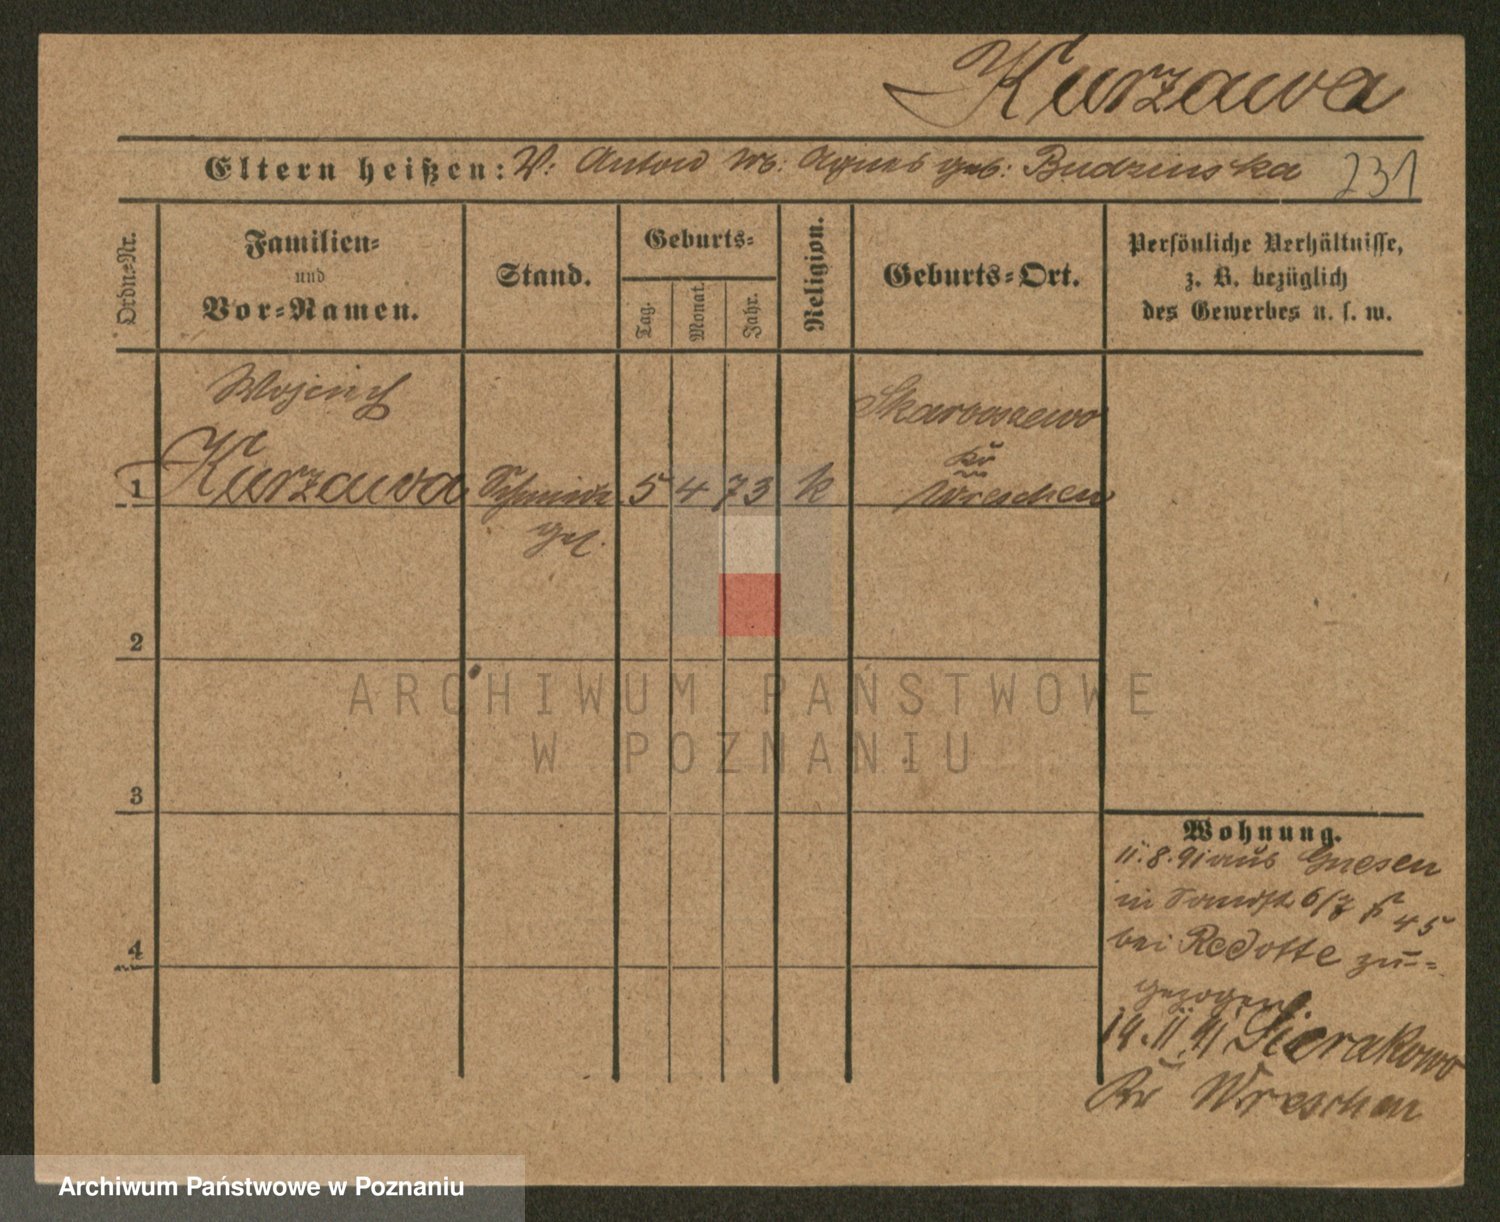 Kurzawa
Eltern heißen: V: Anton M: Agnes geb: Budzinska 231
Ordn=Nr.
Familien=
und
Vor=Namen.
Stand.
Geburts=
Tag.
Monat.
Jahr.
Religion.
Geburts=Ort.
Persönliche Verhältnisse,
z. B. bezüglich
des Gewerbes u. s. w.
Skarboszewo
Kr
1 Kurzawa Schmiede 5 4 73 k Wreschen
ges.
2
ARCHIWUM PAŃSTWOWE
W POZNANIU
3
4
Wohnung.
11.8.91 aus Gnesen
in 6/7 45
bei Redotte zu=
gezogen
14.11.91 Sierakowo
Kr Wreschen
Archiwum Państwowe w Poznaniu